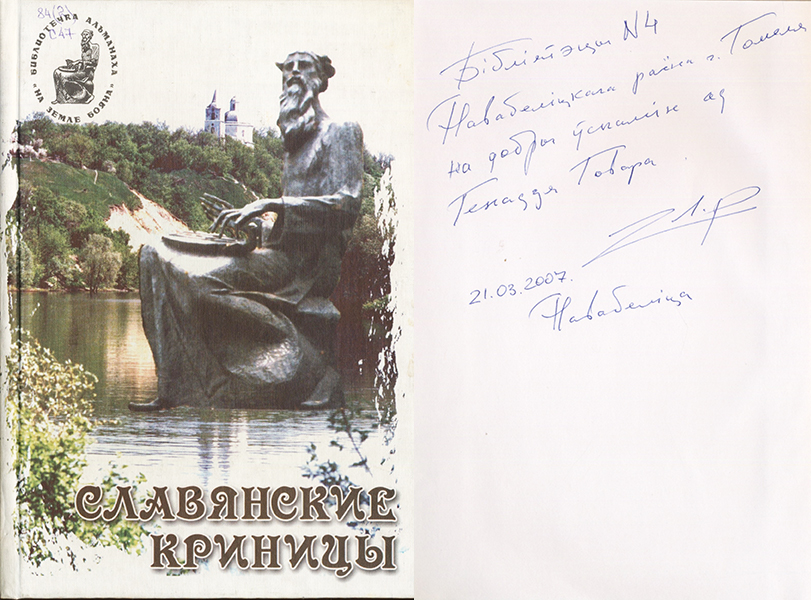 84(2)
С47
БИБЛИОТЕЧКА АЛЬМАНАХА
«НА ЗЕМЛЕ БОЯНА»
СЛАВЯНСКИЕ
КРИНИЦЫ
Бібліятэцы N4
Навабеліцкага раёна г. Гомеля
на добры ўспамін ад
Генадзя Говара
21.03.2007.
Навабеліца